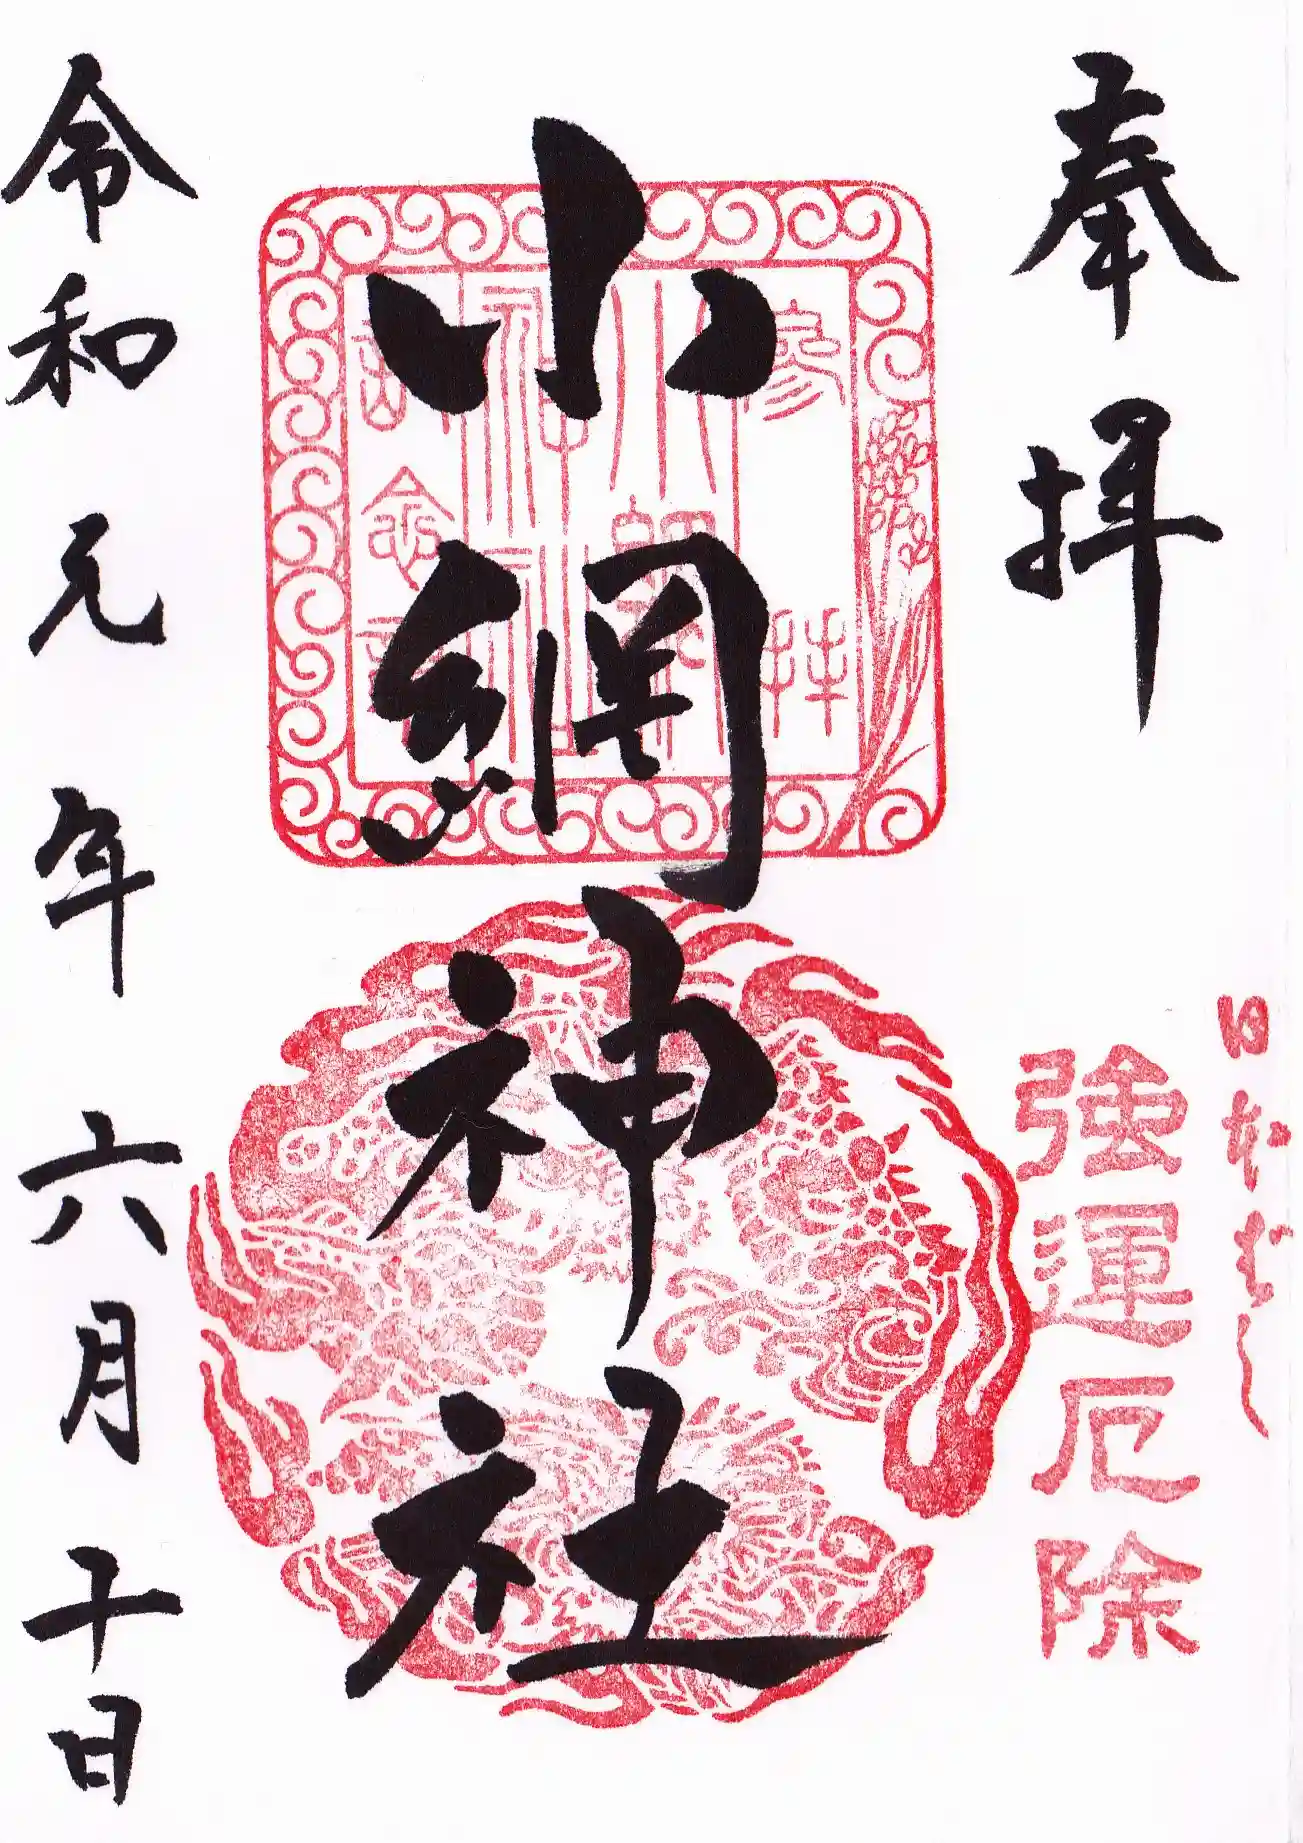 奉拝
日本ばし
強運厄除
小網神社
参拝
小網
神社
記念
令和元年六月十日